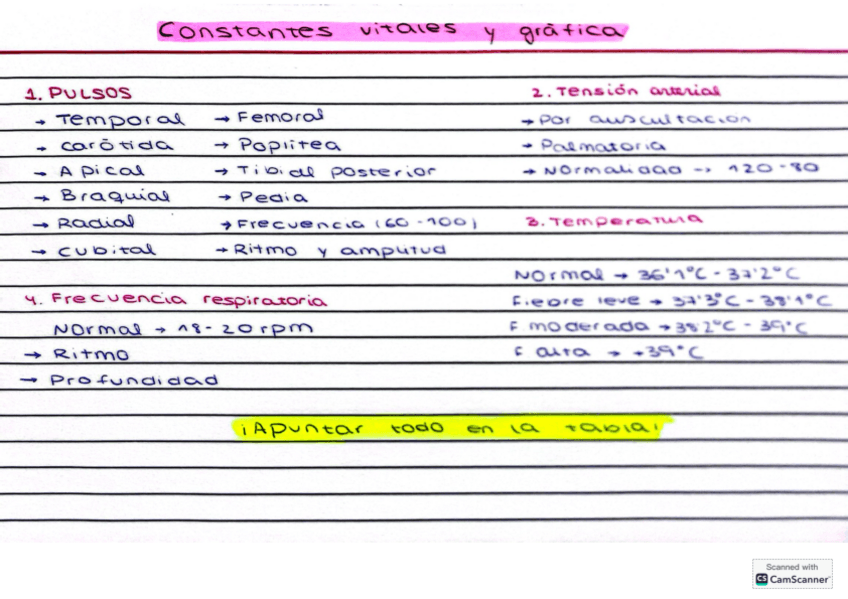 Constantes vitales y gráfica
1. PULSOS
→ Temporal
→ carótida
→ Apical
→ Braquial
→ Radial
→ cubital
→ Femoral
→ Poplitea
→ Tibial posterior
→ Pedia
→ Frecuencia (60-100)
→ Ritmo y amplitud
2. Tensión arterial
→ Por auscultación
→ Palmatoria
→ Normalidad → 120-80
3. Temperatura
Normal → 36'1°C - 37'2°C
Fiebre leve → 37'3°C - 38'1°C
F moderada → 38'2°C - 39°C
F alta → +39°C
4. Frecuencia respiratoria
Normal → 18-20 rpm
→ Ritmo
→ Profundidad
¡Apuntar todo en la tabla!
Scanned with
CS CamScanner